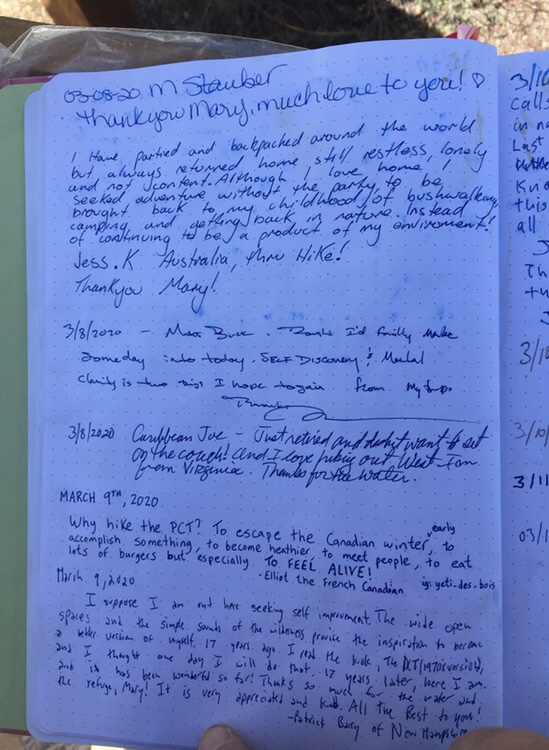 03-08-20 M Stauber
Thankyou Mary, much love to you! ♡
I Have partied and backpacked around the world
but always returned home still restless, lonely
and not content. Although I love home I
seeked adventure without the party, to be
brought back to my childhood of bushwalking,
camping and getting back in nature. Instead
of continuing to be a product of my enviroment!
Jess.K Australia, thru Hike!
Thankyou Mary!
3/8/2020 - I'd finally make
someday into today. SELF DISCOVERY & Mental
clarity is two things I hope to gain from my
3/8/2020 Caribbean Joe - Just retired and didn't want to set
on the couch! And I love hiking out West. I am
from Virginia. Thanks for the water.
MARCH 9TH, 2020
Why hike the PCT? To escape the Canadian winter early, to
accomplish something, to become healthier, to meet people, to eat
lots of burgers but especially TO FEEL ALIVE!
-Elliot the French Canadian ig: yeti-des-bois
March 9, 2020
I suppose I am out here seeking self improvement. The wide open
spaces and the simple sounds of the wilderness provide the inspiration to become
a better version of myself. 17 years ago I read the book, The PCT (1970's version),
and I thought one day I will do that. 17 years later, here I am
and it has been wonderful so far! Thanks so much for the water and
the refuge, Mary! It is very appreciated and kind. All the Best to you!
-Patrick Barry of New Hampshire
3/10
calls
in na
Last
Kno
this
all
J
Th
tu
J
3/10
3/10/
3/11
03/1